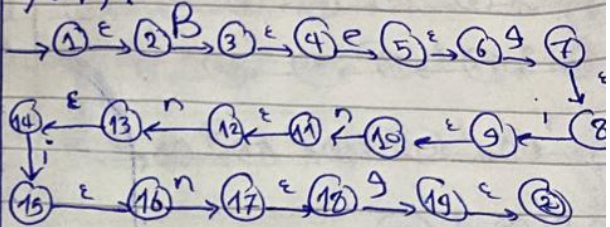 1 ε 2 B 3 ε 4 e 5 ε 6 g 7
ε
14 ε 13 n 12 ε 11 n 10 ε 9 i 8
i
15 ε 16 n 17 ε 18 g 19 ε 2